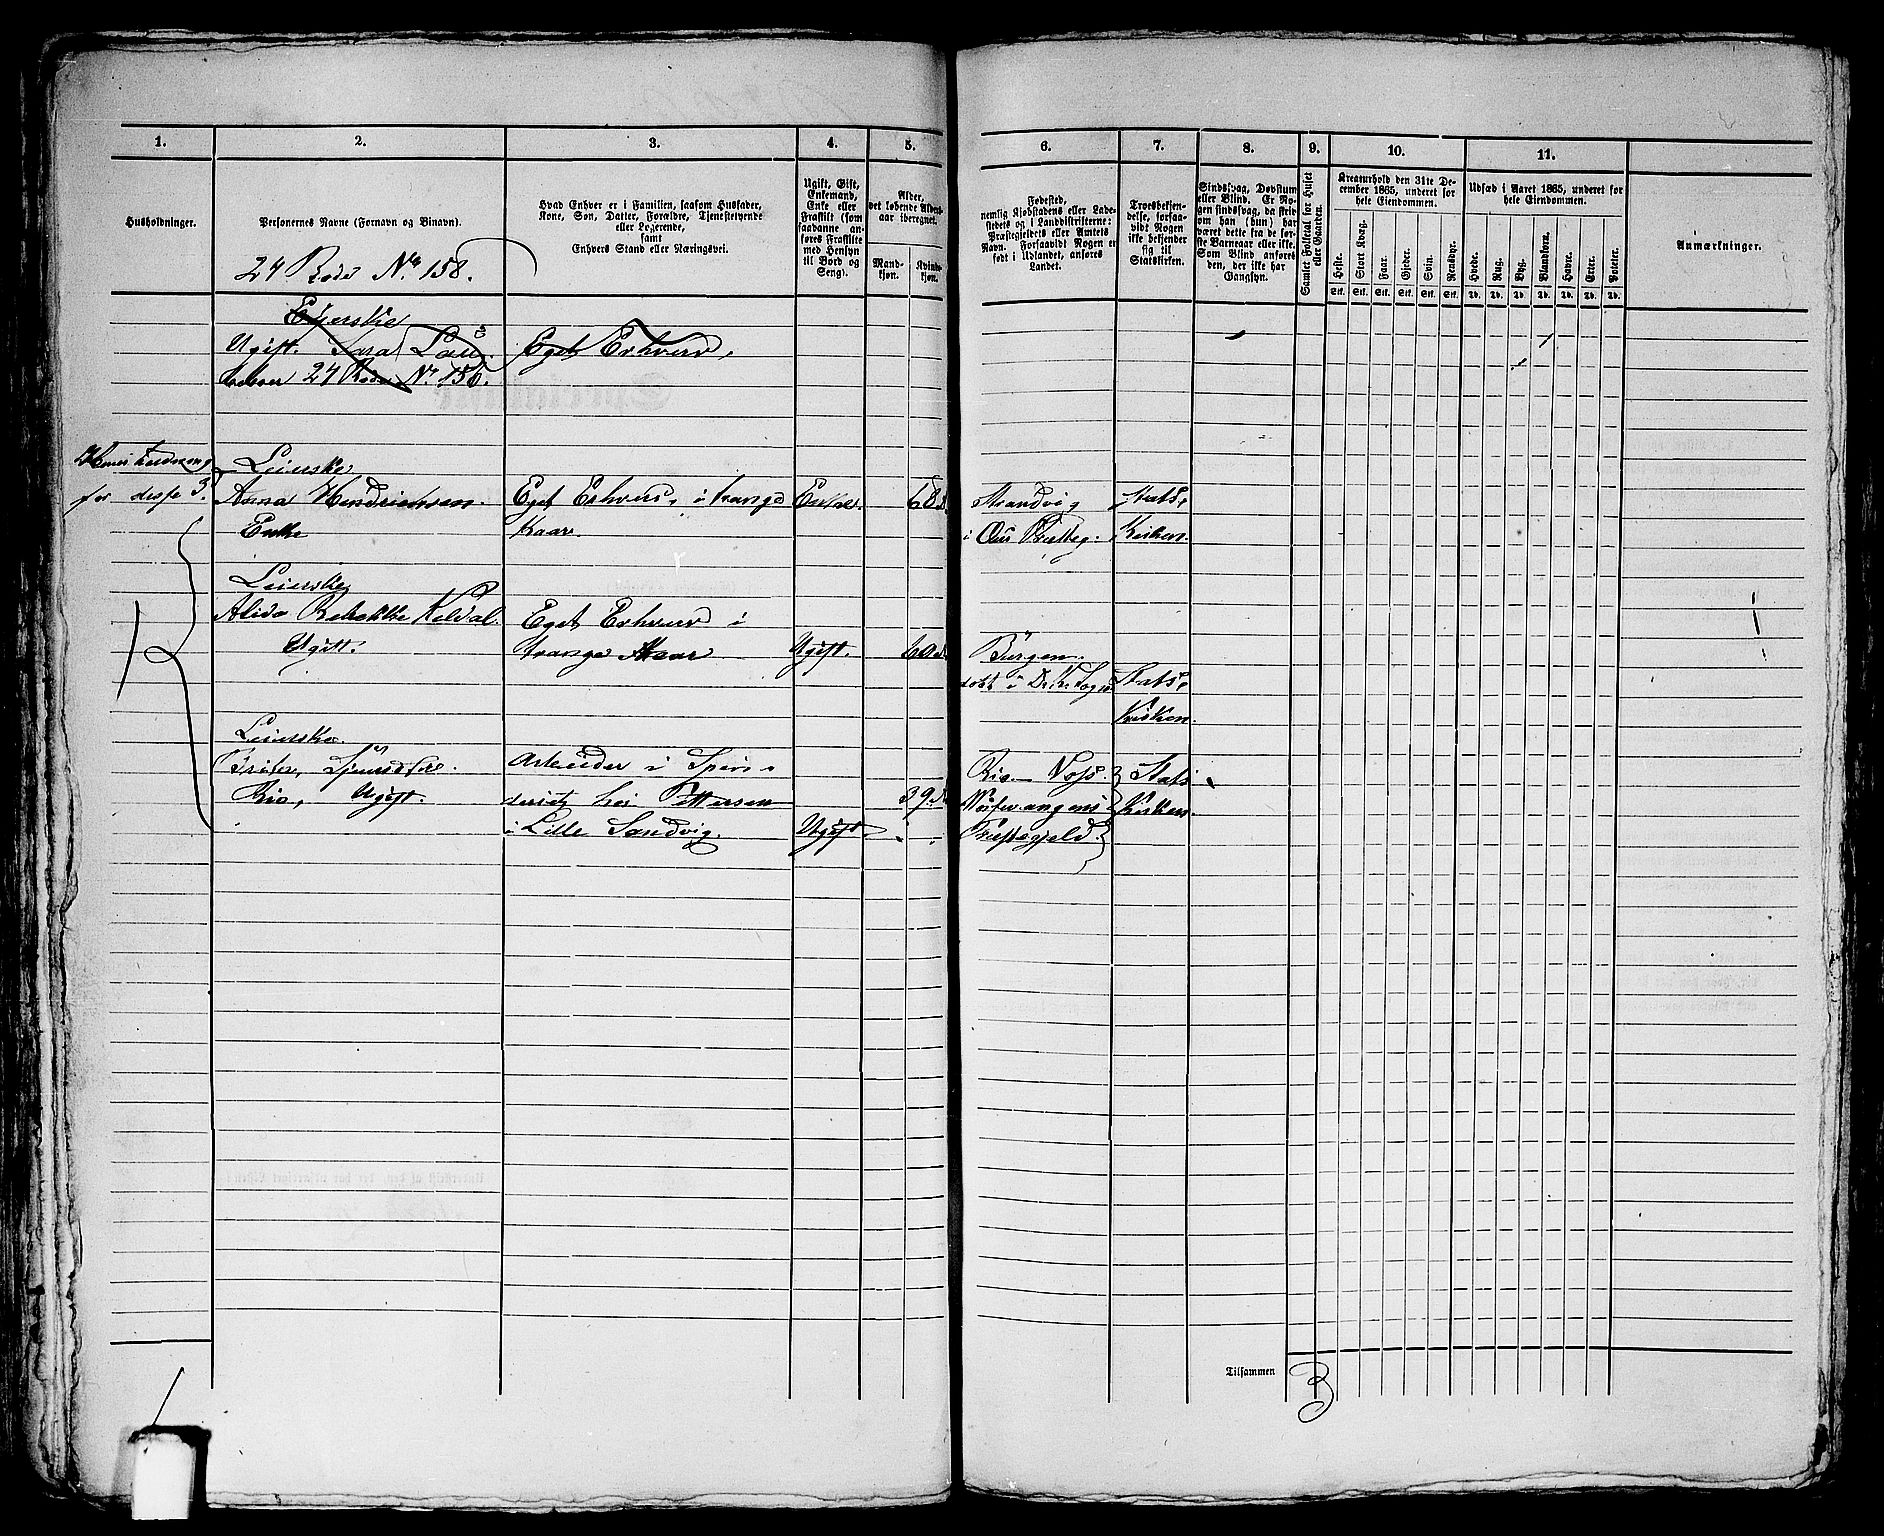 1.
2.
3.
4.
5.
6.
7.
8.
9.
10.
11.
Husholdninger.
Personernes Navne (Fornavn og Binavn).
Hvad Enhver er i Familien, saasom Husfader,
Kone, Søn, Datter, Forældre, Tjenestetyende
eller Logerende,
samt
Enhvers Stand eller Næringsvei.
Ugift, Gift,
Enkemand,
Enke eller
Fraskilt (som
saadanne an-
føres Fraskilte
med Hensyn
til Bord og
Seng).
Alder,
det løbende Alders-
aar iberegnet.
Mand-
kjøn.
Kvinde-
kjøn.
Fødested,
nemlig Kjøbstadens eller Lade-
stedets og i Landdistrikterne:
Præstegjeldets eller Amtets
Navn. Forsaavidt Nogen er
født i Udlandet, anføres
Landet.
Troesbekjen-
delse, forsaa-
vidt Nogen
ikke bekjender
sig til
Statskirken.
Sindssvag, Døvstum
eller Blind. Er No-
gen sindssvag, da skri-
ves om han (hun) har
været dette fra de før-
ste Barneaar eller ikke.
Som Blind anføres
den, der ikke har
Gangsyn.
Samlet Folketal for Huset
eller Gaarden.
Kreaturhold den 31te De-
cember 1865, underet for
hele Eiendommen.
Heste.
Stort Kvæg.
Faar.
Gjeder.
Svin.
Rensdyr.
Stk. Stk. Stk. Stk. Stk. Stk.
Udsæd i Aaret 1865, underet for
hele Eiendommen.
Hvede.
Rug.
Byg.
Blandkorn.
Havre.
Erter.
Poteter.
Td. Td. Td. Td. Td. Td. Td.
Anmærkninger.
24 Rode No 158.
Eierske
Ugift. Sara Lau Eget Erhverv,
24 Rode No 156.
Huusholdning
for disse 3.
Leierske
Anna Hendrichsen. Eget Erhverv, i trange Enke. 68 Strandvig Stats,
Enke Kaar. i Ous Præsteg. Kirken.
Leierske
Alida Rebekke Keldal. Eget Erhverv i
Ugift. trange Kaar Ugift. 60 Bergen.
i Sogn Stats,
Kirken.
Leierske
Brite, Sjursdtr. Arbeider i Spin- Rio Voss Stats
Rio, Ugift. deriet hos Pettersen 39 Wossevangens Kirken
i Lille Sandvig. Ugift Præstegjeld.
Tilsammen 3